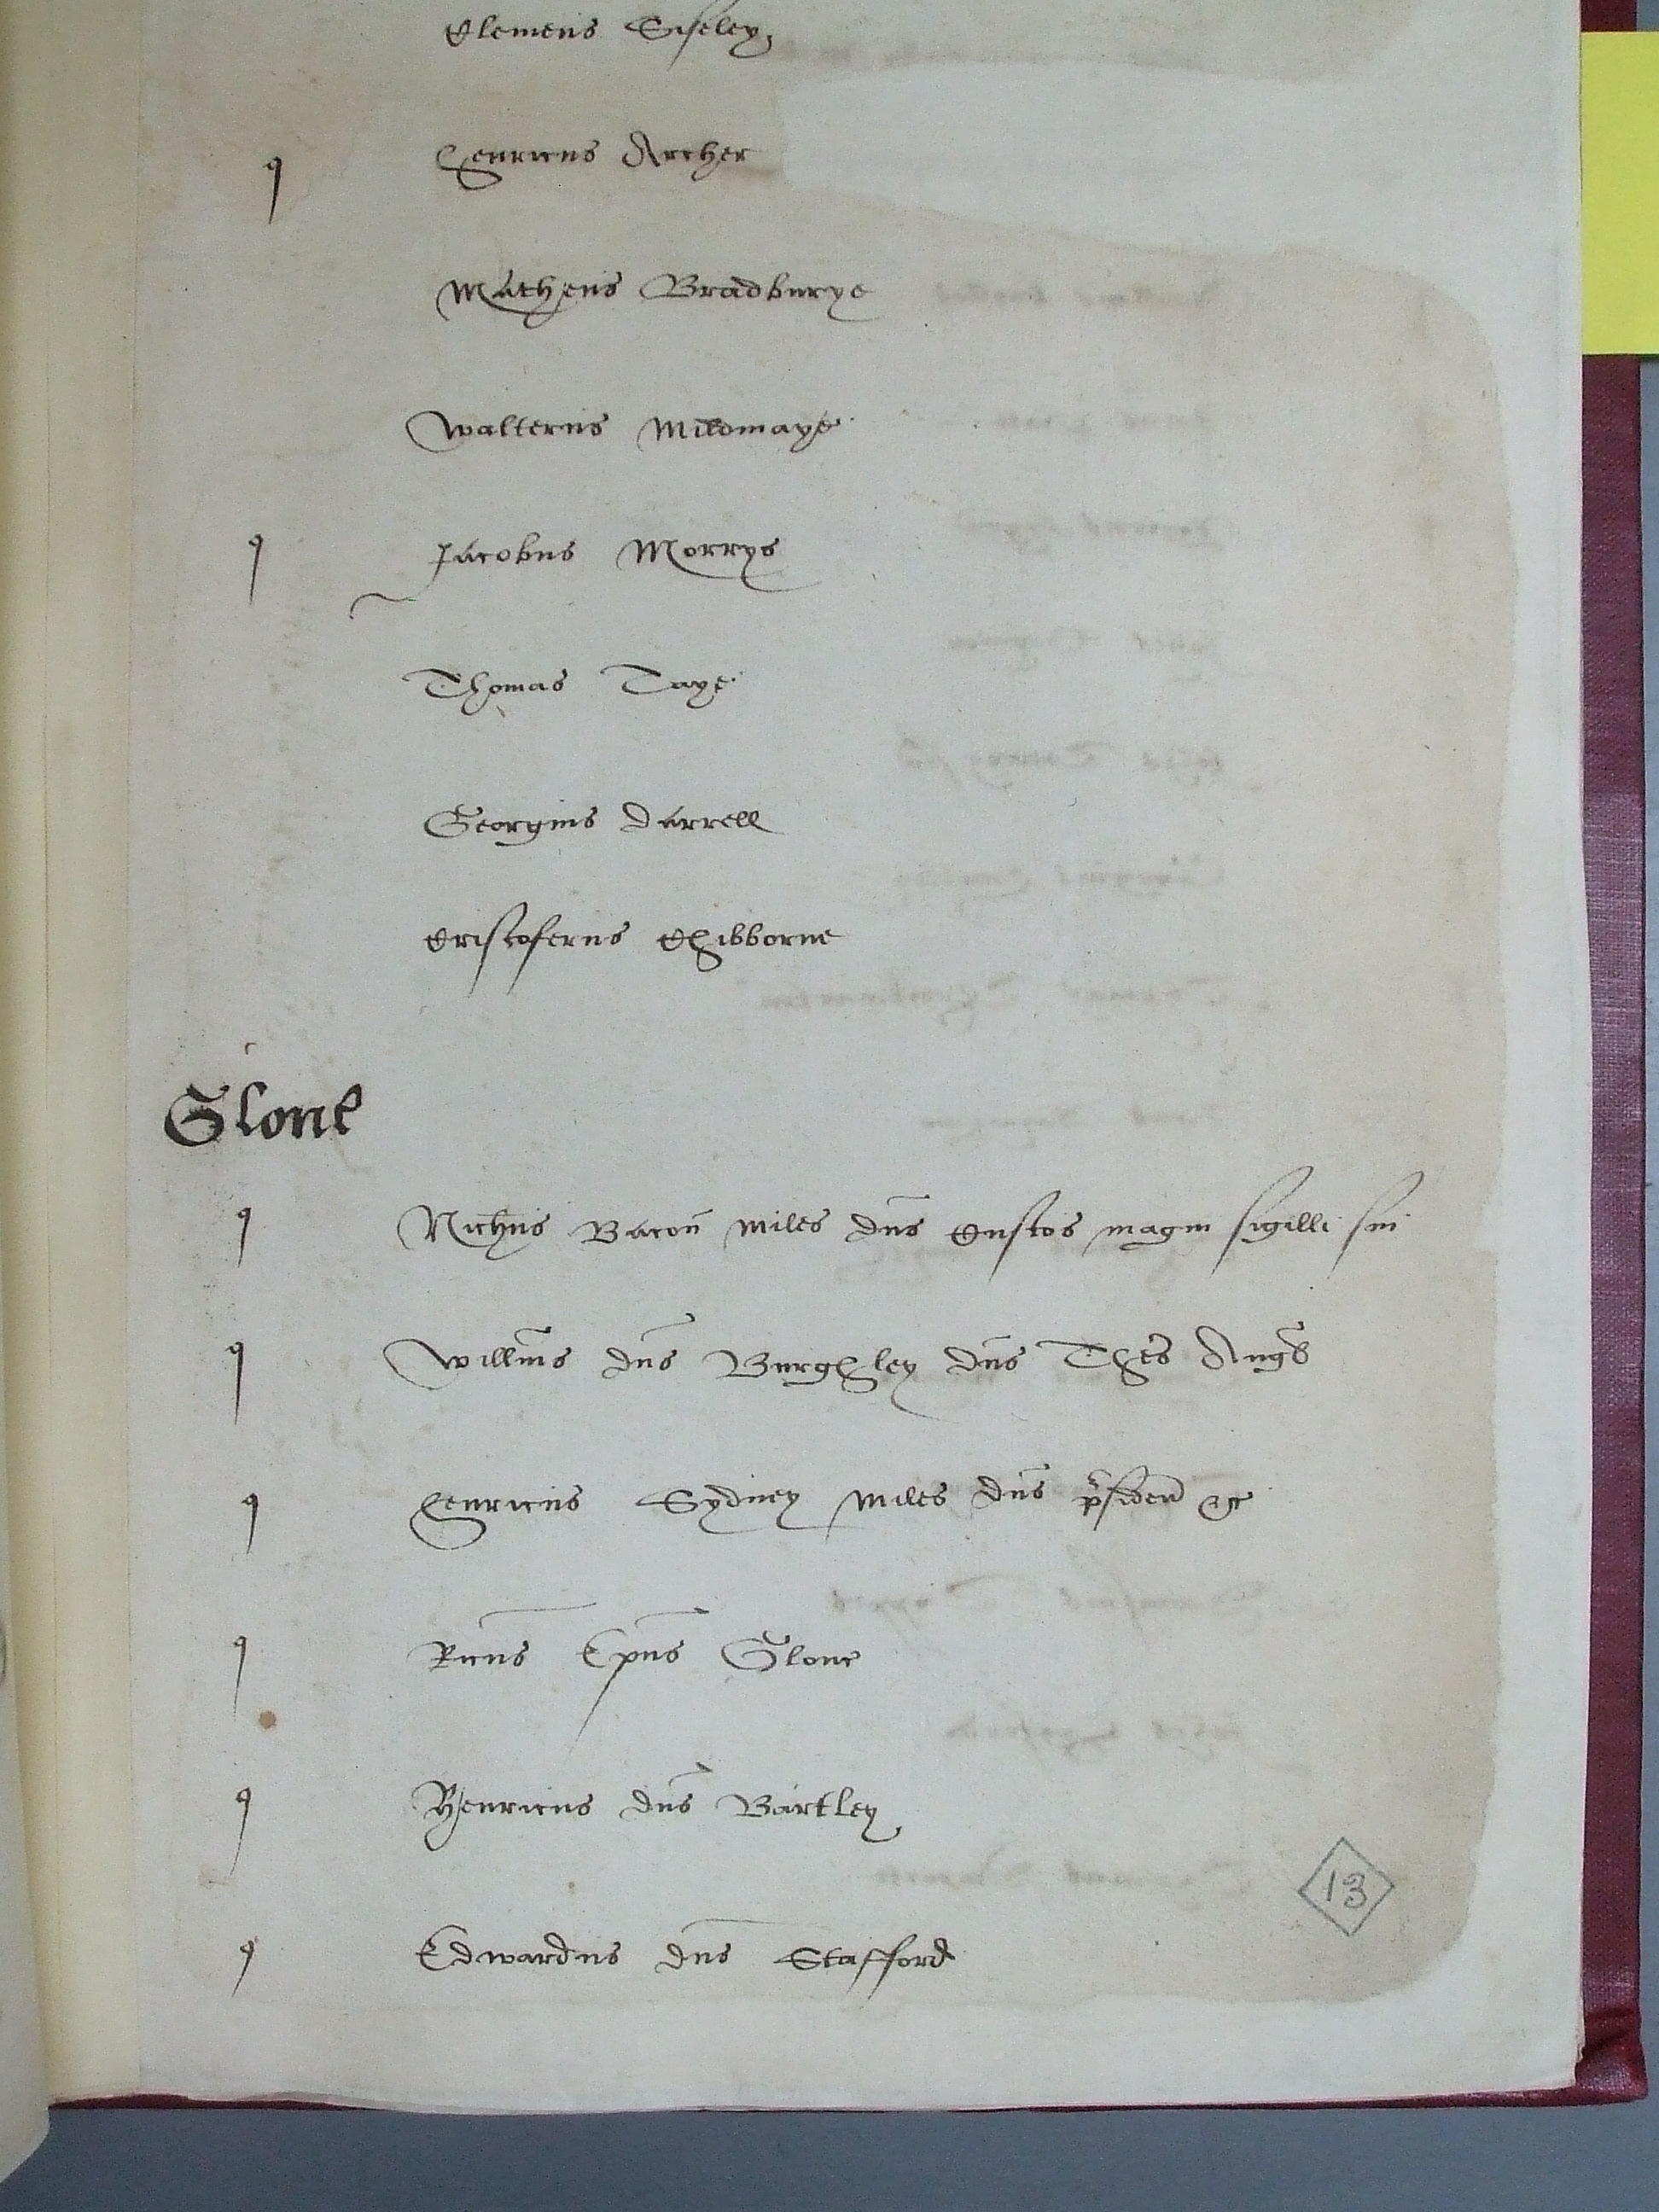 Clemens Siseley
q Henricus Archer
Matheus Bradburye
Walterus Mildmaye
q Jacobus Morrys
Thomas Taye
Georgius Darrell
Cristoferus Chibborne
Glouc
q Nichus Bacon miles dns Custos magni sigilli sui
q Willms dns Burghley dns Thes Angl
q Henricus Sydney miles dns psiden &c
q Ricus Epus Glouc
q Henricus dns Bartley
q Edwardus dns Stafford
13